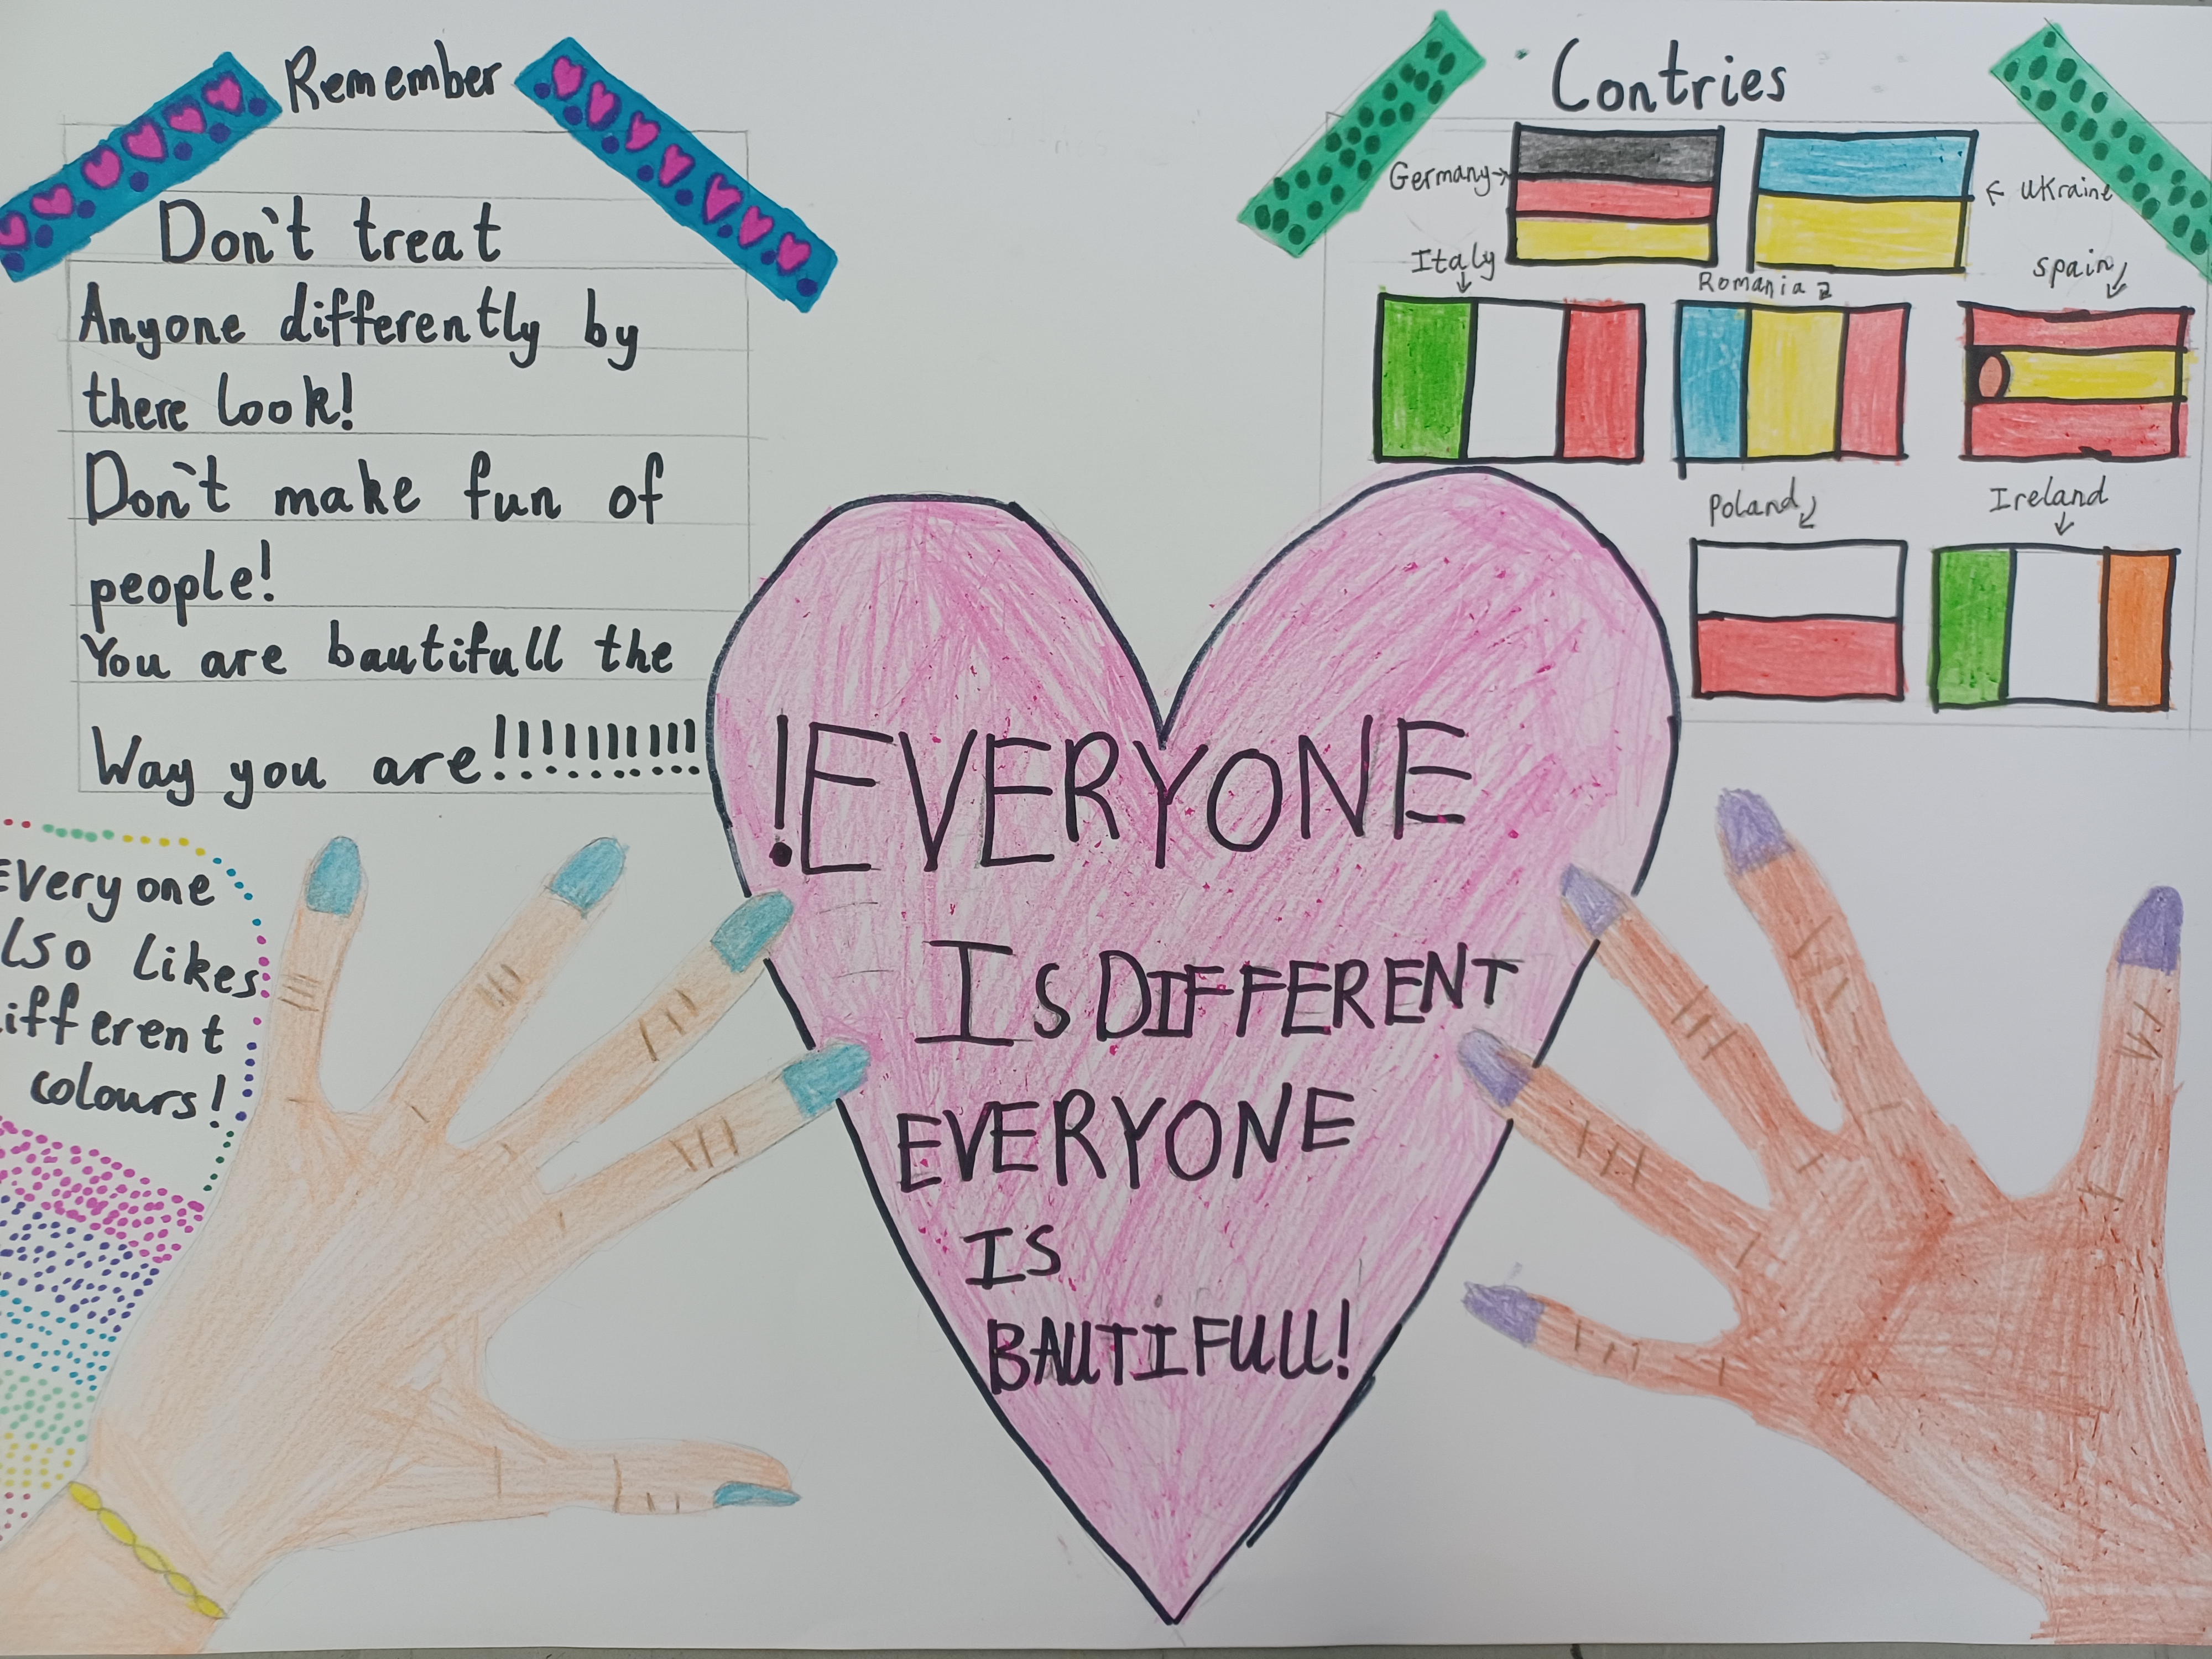 Remember
Don't treat
Anyone differently by
there look!
Don't make fun of
people!
You are bautifull the
Way you are!!!!!!!!!!!
Contries
Germany
Ukraine
Italy
Romania
Spain
Poland
Ireland
!EVERYONE
IS DIFFERENT
EVERYONE
IS
BAUTIFULL!
Everyone
lso likes
ifferent
colours!